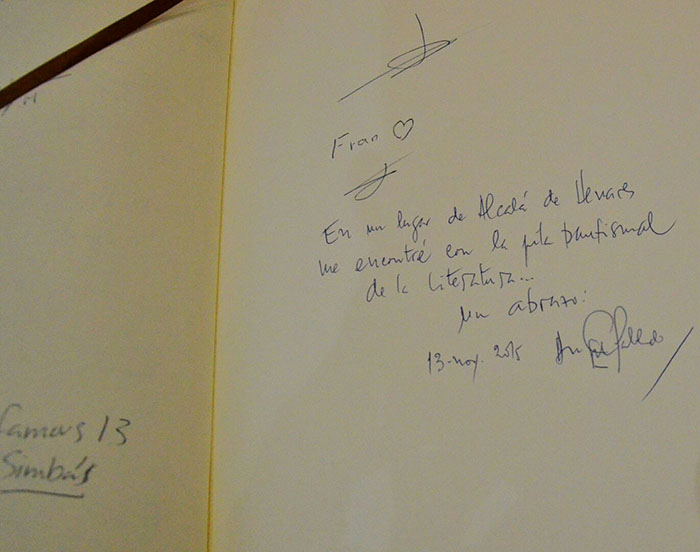 famous 13
Simbás
Fran ♡
En un lugar de Alcalá de Henares
me encontré con la pila bautismal
de la literatura...
un abrazo:
13-nov. 2015